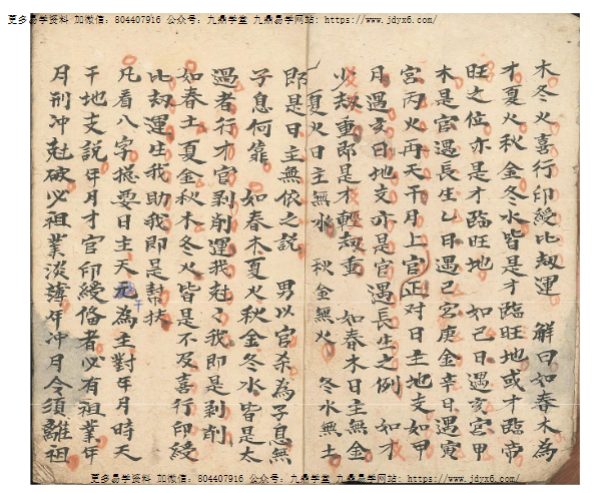 更多易学资料 加微信：804407916 公众号：九鼎学堂 九鼎易学网站：https://www.jdyx6.com/
木冬火喜行印綬比刼運　解曰如春木為
才夏火秋金冬水皆是才臨旺地或才臨帝
旺之位亦是才臨旺地　如己日遇亥宮甲
木是官遇長生乙日遇己宮庚金辛日遇寅
宮丙火再天干月上官正对日主地支如甲
月遇亥日地支亦是官遇長生之例　如才
少刼重即是才輕刼重　如春木日主無金
夏火日主無水　秋金無火　冬水無土
即是日主無依之説　男以官杀為子息無
子息何靠　如春木夏火秋金冬水皆是太
過者行才官剥削運我尅尅我即是剥削
如春土夏金秋木冬火皆是不及喜行印綬
比刼運生我助我即是幫扶
凡看八字揔要日主天干為主對年月時天
干地支説年月才官印綬偹者必有祖業年
月刑冲尅破必祖業淡薄年冲月令須離祖
更多易学资料 加微信：804407916 公众号：九鼎学堂 九鼎易学网站：https://www.jdyx6.com/